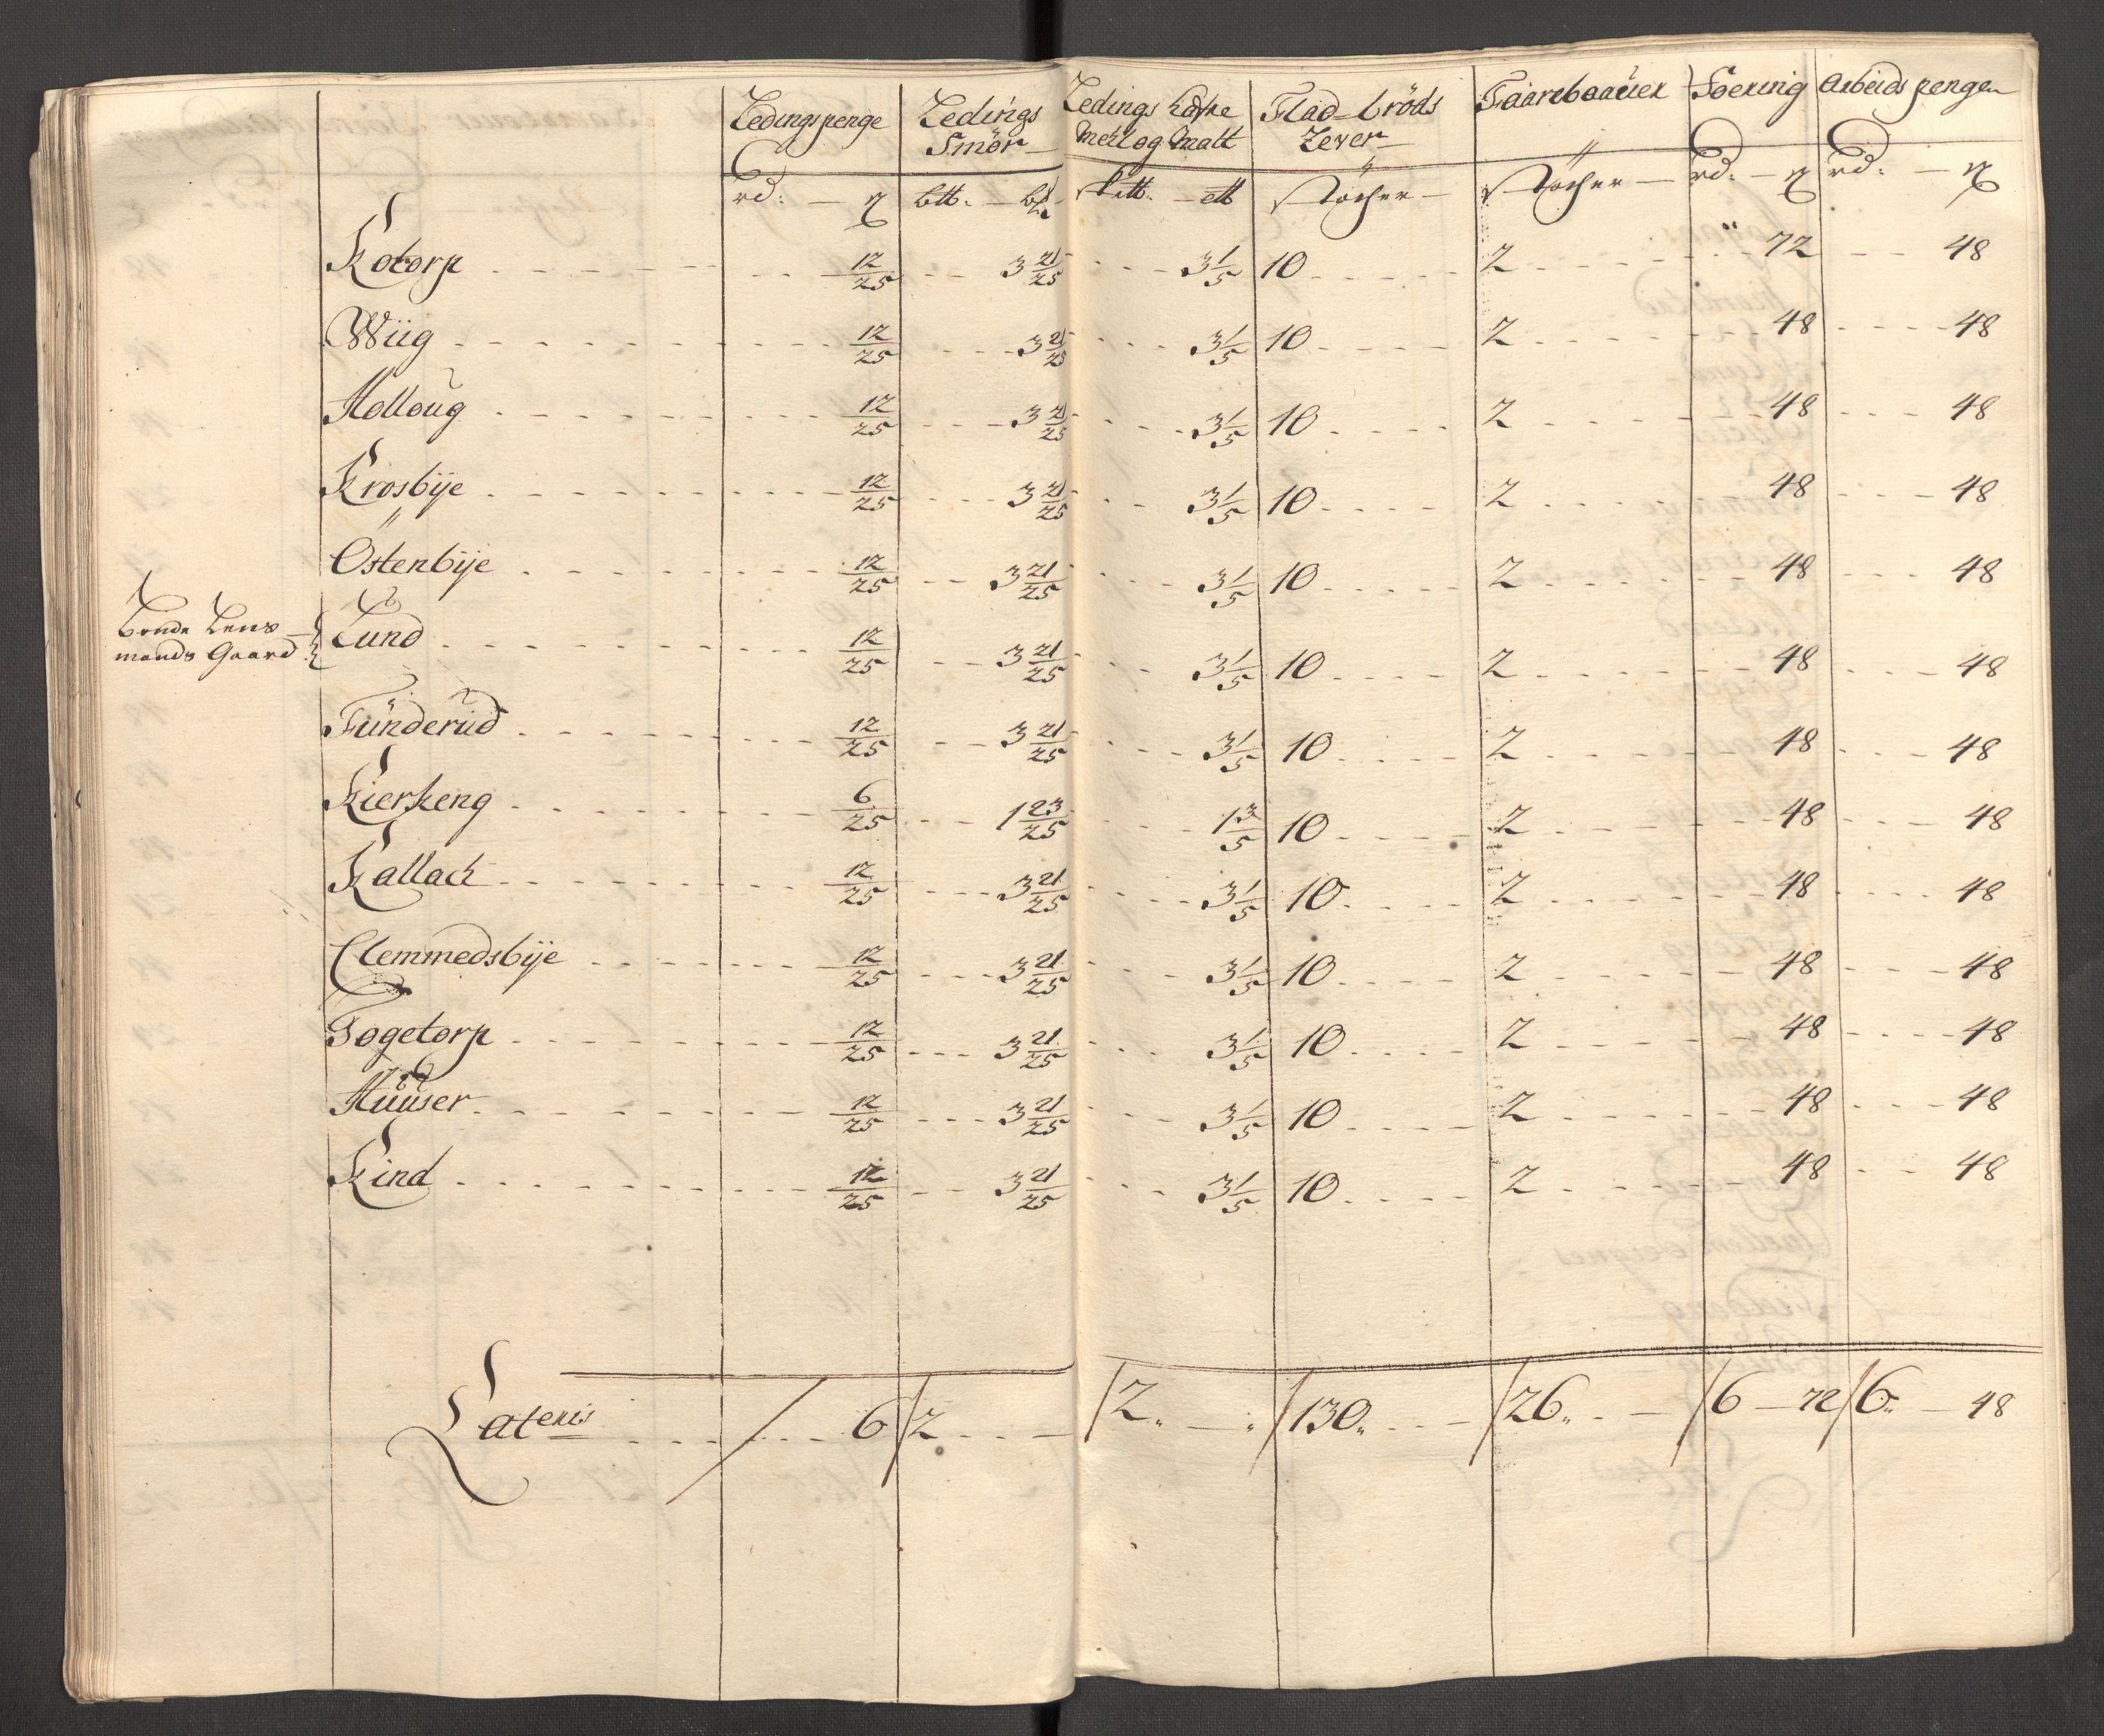 Ledingspenge | Ledings Smör | Ledings Mehl og Malt | Flad-bröds Lever | Faareboauer | Foering | Arbeids penge
rd: | btt. | Stöcher | Stöcher | rd. | rd.
Kotorp | 12/25 | 3 21/25 | 3 1/5 | 10 | 2 | 72 | 48
Wiig | 12/25 | 3 21/25 | 3 1/5 | 10 | 2 | 48 | 48
Holloug | 12/25 | 3 21/25 | 3 1/5 | 10 | 2 | 48 | 48
Krosbÿe | 12/25 | 3 21/25 | 3 1/5 | 10 | 2 | 48 | 48
Östenbÿe | 12/25 | 3 21/25 | 3 1/5 | 10 | 2 | 48 | 48
Bonde Lens mands Gaard | Lund | 12/25 | 3 21/25 | 3 1/5 | 10 | 2 | 48 | 48
Funderud | 12/25 | 3 21/25 | 3 1/5 | 10 | 2 | 48 | 48
Kierkeng | 6/25 | 1 23/25 | 1 3/5 | 10 | 2 | 48 | 48
Kallack | 12/25 | 3 21/25 | 3 1/5 | 10 | 2 | 48 | 48
Clemmedsbÿe | 12/25 | 3 21/25 | 3 1/5 | 10 | 2 | 48 | 48
Togetorp | 12/25 | 3 21/25 | 3 1/5 | 10 | 2 | 48 | 48
Huuser | 12/25 | 3 21/25 | 3 1/5 | 10 | 2 | 48 | 48
Kind | 12/25 | 3 21/25 | 3 1/5 | 10 | 2 | 48 | 48
Lateris | 6 | 2 | 2 | 130 | 26 | 6 – 72 | 6 – 48